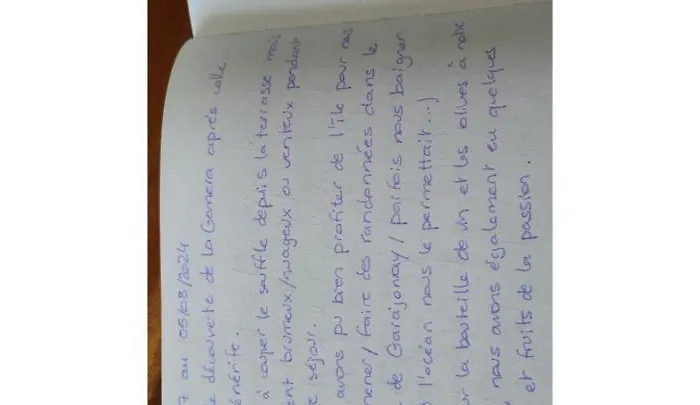 7 au 05/08/2024
découverte de la Gomera après celle
énérite.
à couper le souffle depuis la terrasse mais
ent brumeux/nuageux ou venteux pendant
séjour.
avons pu bien profiter de l'île pour nous
mener/faire des randonnées dans le
de Garajonay/parfois nous baigner
l'océan nous le permettait...)
ur la bouteille de vin et les olives à notre
nous avons également eu quelques
et fruits de la passion.